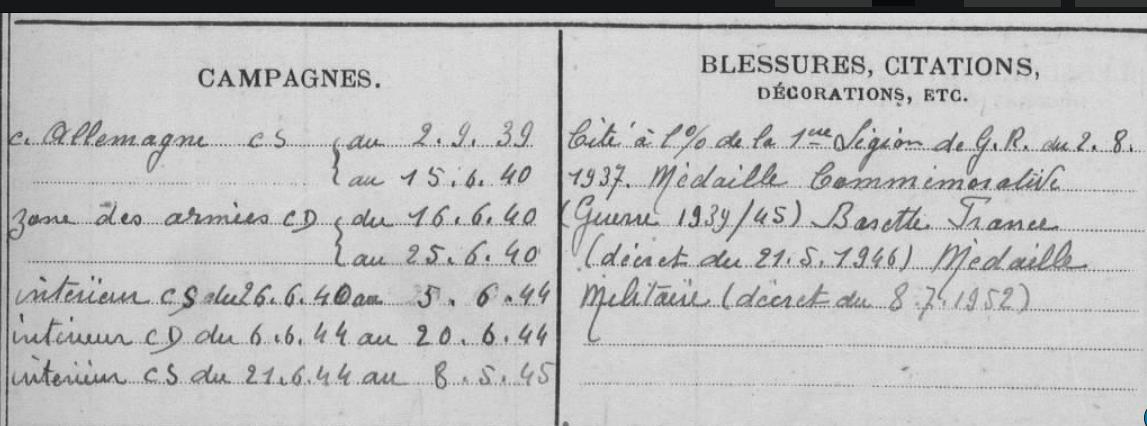 CAMPAGNES.
c. Allemagne CS { au 2.9.39
au 15.6.40
zone des armées CD { du 16.6.40
au 25.6.40
intérieur CS du 26.6.40 au 5.6.44
intérieur CD du 6.6.44 au 20.6.44
intérieur CS du 21.6.44 au 8.5.45
BLESSURES, CITATIONS,
DÉCORATIONS, ETC.
Cité à l'O/o de la 1ère Légion de G.R. du 2.8.
1937. Médaille Commémorative
(Guerre 1939/45) Barette France
(décret du 21.5.1946) Médaille
Militaire (décret du 8.7.1952)